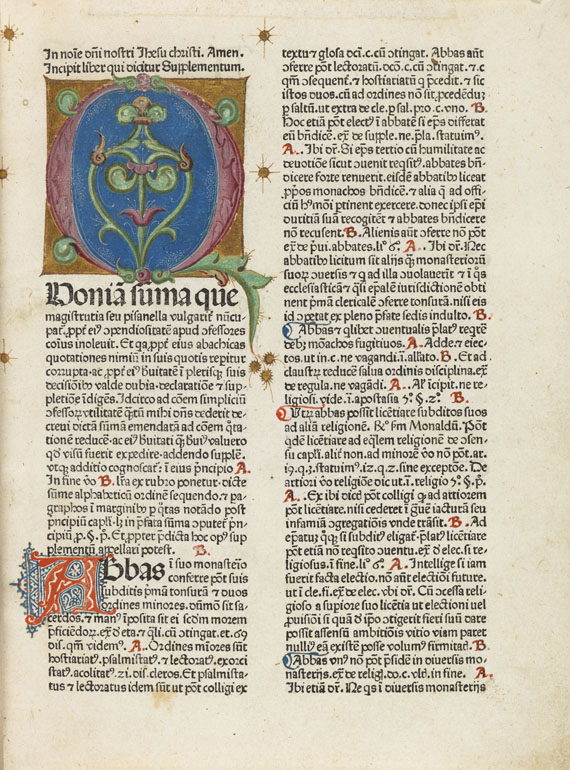 In noīe dñi nostri Ihesu christi. Amen.
Incipit liber qui dicitur Supplementum.
Qoniā sūma que
magistrutia seu pisanella vulgarit᷑ nūcu
pat᷑, ꝓpt᷑ eiꝰ ↄpendiositatē apud ↄfessores
cōius inoleuit. Et qꝛ ꝓpt᷑ eius abachicas
quotationes nimiū in suis quotis repitur
corrupta. ac ꝓpt᷑ eiꝰ ƀuitatē ī plerisqꝫ suis
decisiōibꝰ valde dubia. declaratiōe ⁊ sup
pletiōe īdiges. Idcirco ad cōem simpliciū
ↄfessoꝝ vtilitatē qꝫtū mihi dñs dederit de-
creui dictā sūmā emendatā ad cōem q̄ta-
tionē reducē. ac eiꝰ ƀuitati qꝫ ƀuiꝰ valuero
qd visū fuerit expedire. addendo supplere.
vtqꝫ additio cognoscat᷑: ī eius p̄ncipio A.
In fine vo B. lr̄a ex rubro ponetur. dicte
sūme alphabeticū ordinē sequendo. ⁊ pa-
ragraphos ī marginibꝰ ꝑ q̄tas notādo post
pncipiū capli. lꝫ in p̄fata sūma oputer p̄n-
cipiū. p. §. p. Et ꝓpter p̄dicta hoc opꝰ sup
plementū appellari potest. B.
ABbas ī suo monastēio
conferre pōt suis
subditis pmā tonsurā ⁊ duos
ordines minores. dūmō sit sa-
cerdos. ⁊ manꝰ īposita sit ei scdm morem
p̄ficiēdoꝝ. ex̄ d eta. ⁊ q̄li. cū ↄtingat. et. 69
dis. qm̄ videmꝰ. A. Ordines mīores sūt
hostiariatꝰ. psalmistatꝰ. ⁊ lectoratꝰ. exorci
statꝰ. acolitatꝰ. 21. dis. cleros. Et psalmista-
tus ⁊ lectoratus idem sūt ut pōt colligi ex
textu ⁊ glosa dc̄ī. c. cū ↄtingat. Abbas aūt
ↄferre pōt lectoratū. dc̄ō. c. cū ↄtingat. ⁊ c
qm̄ ↄsequenē. ⁊ hostiariatū q̄ p̄cedit. ⁊ sic
istos duos. cū ad ordines nō sit ꝓcedēdū
ꝑ saltū. ut extra de cle. ꝑ sal. pro. c. vno. B.
Hoc etiā pōt electꝰ ī abbatē si ep̄s differat
eū bn̄dicē. ex̄ de supple. ne. p̄la. statuimꝰ.
A. Ibi dr̄. Si ep̄s tertio cū humilitate ac
deuotiōe sicut ↄuenit reqsitꝰ. abbates bn̄-
dicere forte renuerit. eisdē abbatibꝰ liceat
ꝓpōs monachos bn̄dicē. ⁊ alia q̄ ad offi-
ciū hꝰmōi ptinent exercere. donec ipsi epi
duritiā suā recogitēt ⁊ abbates bn̄dicere
nō recusent. B. Alienis aūt ↄferre nō pōt
ex̄ de p̄ui. abbates. li. 6. A. Ibi dr̄. Nec
abbatibꝰ licitum sit aliqs q̄ monasterioꝝ
suoꝝ ↄuersis ⁊ q ad illa ↄuolauerīt ⁊ ī qs
ecclesiasticā ⁊ q̄si ep̄alē iurisdictionē obti
nent pmā clericalē ↄferre tonsurā. nisi eis
id ↄpetat ex pleno p̄fate sedis indulto. B.
Abbas ⁊ qlibet ↄuentualis p̄latꝰ reqrē
debꝫ mōachos fugitiuos. A. Adde. ⁊ eiec-
tos. ut in. c. ne vagandi. ī. allato. B. Et ad
claustrū reducē salua ordinis disciplina. ex̄
de regula. ne vagādi. A. Aꝉ īcipit. ne re-
ligiosi. vide. ī. apostasia 5º. §. 2º. B.
Utꝝ abbas possit licētiare subditos suos
ad aliā religionē. Rº. fm Monaldū. Pōt
qdē licētiare ad eq̄lem religionē de ↄfen-
su capli. alit᷑ non. ad minorē vo nō pōt. ar.
19. q. 3. statuimꝰ. 12. q. 2. sine exceptōe. De
artiori vo religiōe dic ut. ī. religio 5º. §. p̄.
A. Ex ibi dicē pōt colligi q ad artiorem
pōt licētiare. nisi cederet ī grauē iacturā seu
infamiā ↄgregatiōis vnde trāsit. B. Ad
ep̄atuꝫ qꝫ: si subdit᷑ eligat᷑. p̄latꝰ licētiare
pōt etiā nō reqsito ↄuentu. ex̄ d elec. si re-
ligiosus. ī fine. li. 6. A. Intellige si iam
fuerit facta electio. nō aūt electiōi future.
ut ī cle. fi. ex̄ de elec. vbi dr̄. Cū ↄcessa reli-
gioso a supiore suo licētia ut electiōi uel
ꝓuisiōi si quā d ipō ↄtigerit fieri suū date
possit assensū ambitiōis vitio viam paret
nulliꝰ eā existē posse volum firmitat᷑. B.
Abbas vnꝰ nō pōt p̄sidē in diuersis mo-
nasterijs. ex̄ de religi. do. c. vlt. in fine. A.
Ibi etiā dr̄. Ne qs ī diuersis monasterijs